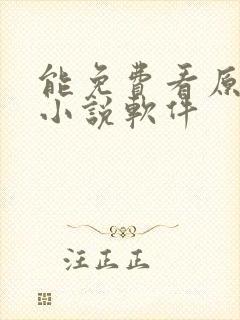 能免費看原
小說軟件
汪正正